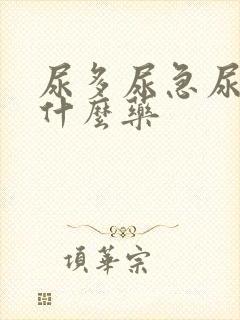 尿多尿急尿
什麼藥
項華宗